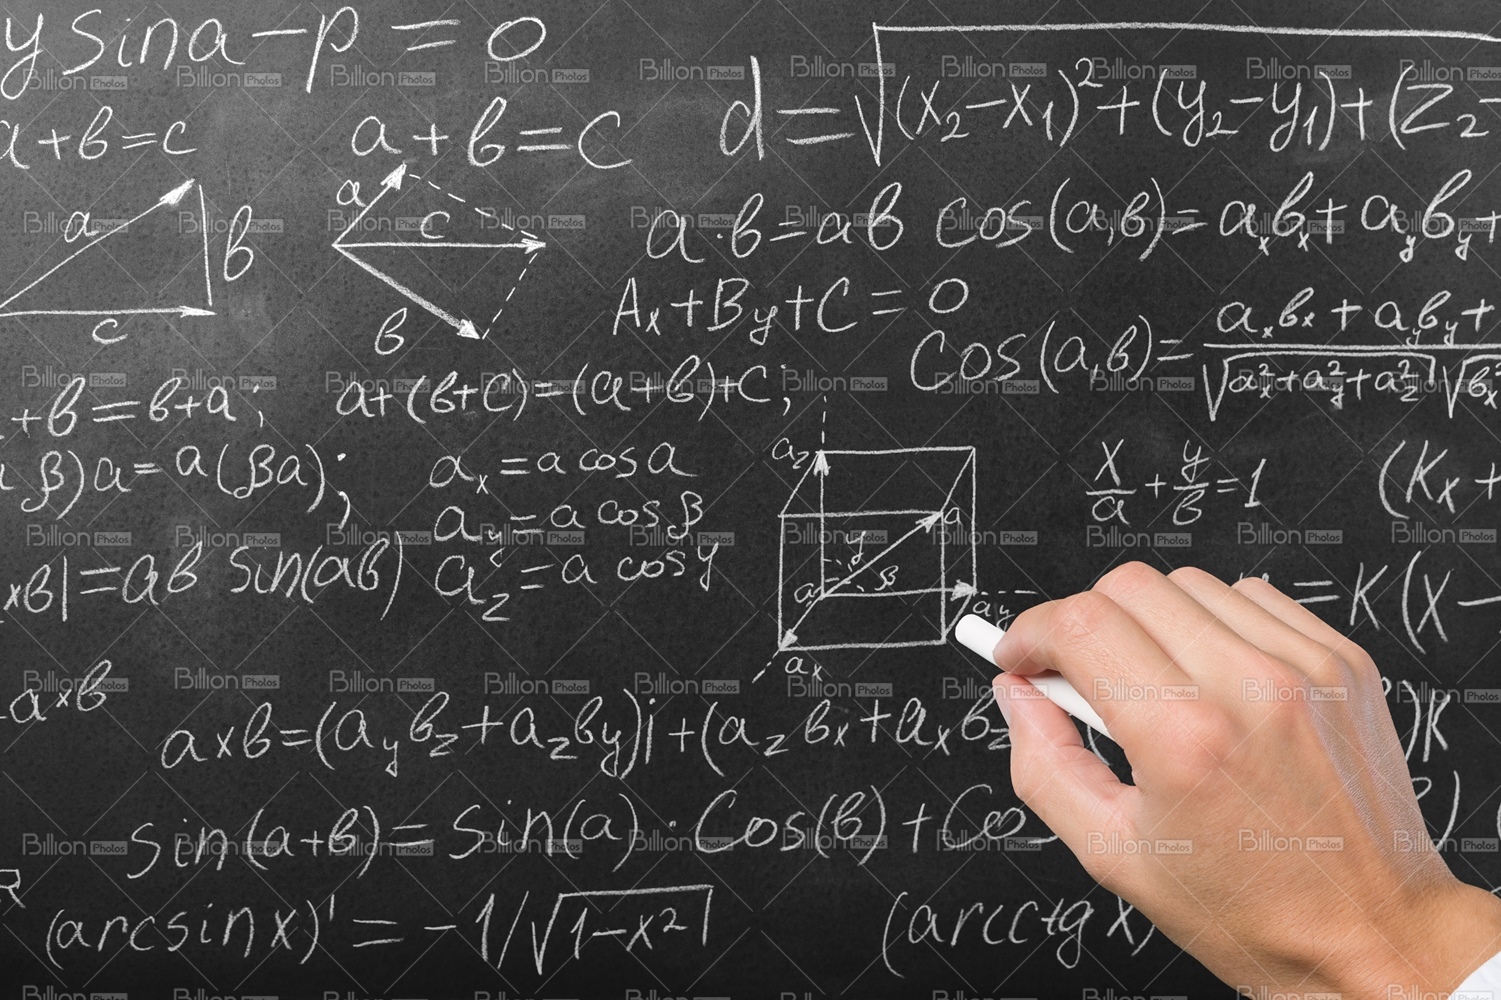 y sina - p = 0
d = √(x₂-x₁)²+(y₂-y₁)+(z₂-
a+b=c
a+b=c
a
b
c
a
c
b
a·b=ab cos(a,b)=aₓbₓ+a_yb_y+
Aₓ+B_y+C=0
cos(a,b)= aₓbₓ+a_yb_y+ / √aₓ²+a_y²+a_z² √bₓ²
+b=b+a;
a+(b+c)=(a+b)+c;
β)a=a(βa);
aₓ=a cosa
a_y=a cosβ
a_z=a cosy
a_z
a
y
β
a
a_y
aₓ
x/a+y/b=1
(Kₓ+
×b|=ab sin(ab)
=K(x-
a×b
a×b=(a_yb_z+a_zb_y)i+(a_zbₓ+aₓb_z
)K
sin(a+b)=sin(a)·Cos(b)+Co
(arcsinx)'=-1/√1-x²
(arcctgx)
Billion Photos